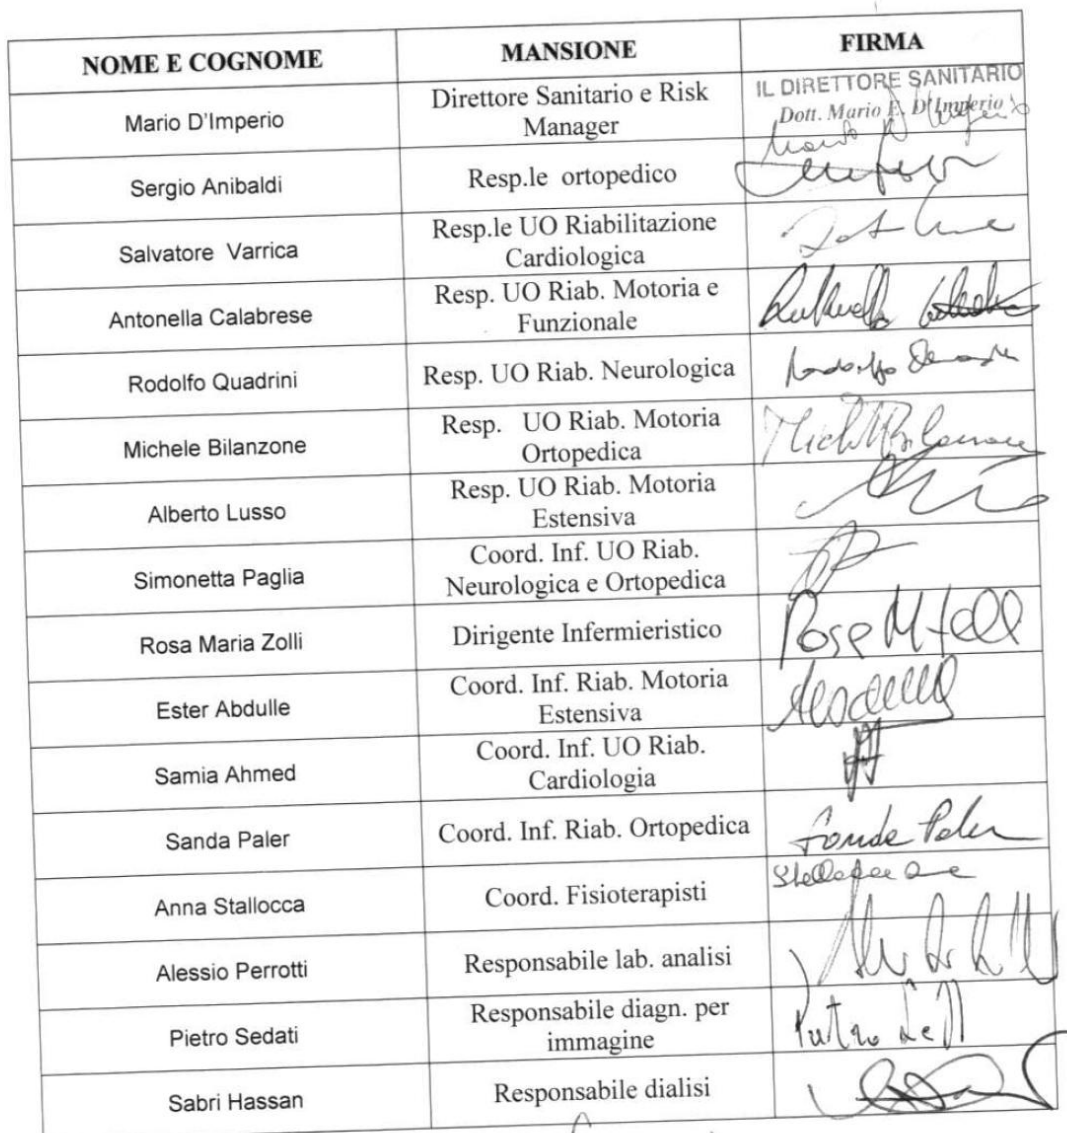 NOME E COGNOME MANSIONE FIRMA
Mario D'Imperio Direttore Sanitario e Risk Manager IL DIRETTORE SANITARIO Dott. Mario E. D'Imperio
Sergio Anibaldi Resp.le ortopedico
Salvatore Varrica Resp.le UO Riabilitazione Cardiologica
Antonella Calabrese Resp. UO Riab. Motoria e Funzionale
Rodolfo Quadrini Resp. UO Riab. Neurologica
Michele Bilanzone Resp. UO Riab. Motoria Ortopedica
Alberto Lusso Resp. UO Riab. Motoria Estensiva
Simonetta Paglia Coord. Inf. UO Riab. Neurologica e Ortopedica
Rosa Maria Zolli Dirigente Infermieristico
Ester Abdulle Coord. Inf. Riab. Motoria Estensiva
Samia Ahmed Coord. Inf. UO Riab. Cardiologia
Sanda Paler Coord. Inf. Riab. Ortopedica
Anna Stallocca Coord. Fisioterapisti
Alessio Perrotti Responsabile lab. analisi
Pietro Sedati Responsabile diagn. per immagine
Sabri Hassan Responsabile dialisi